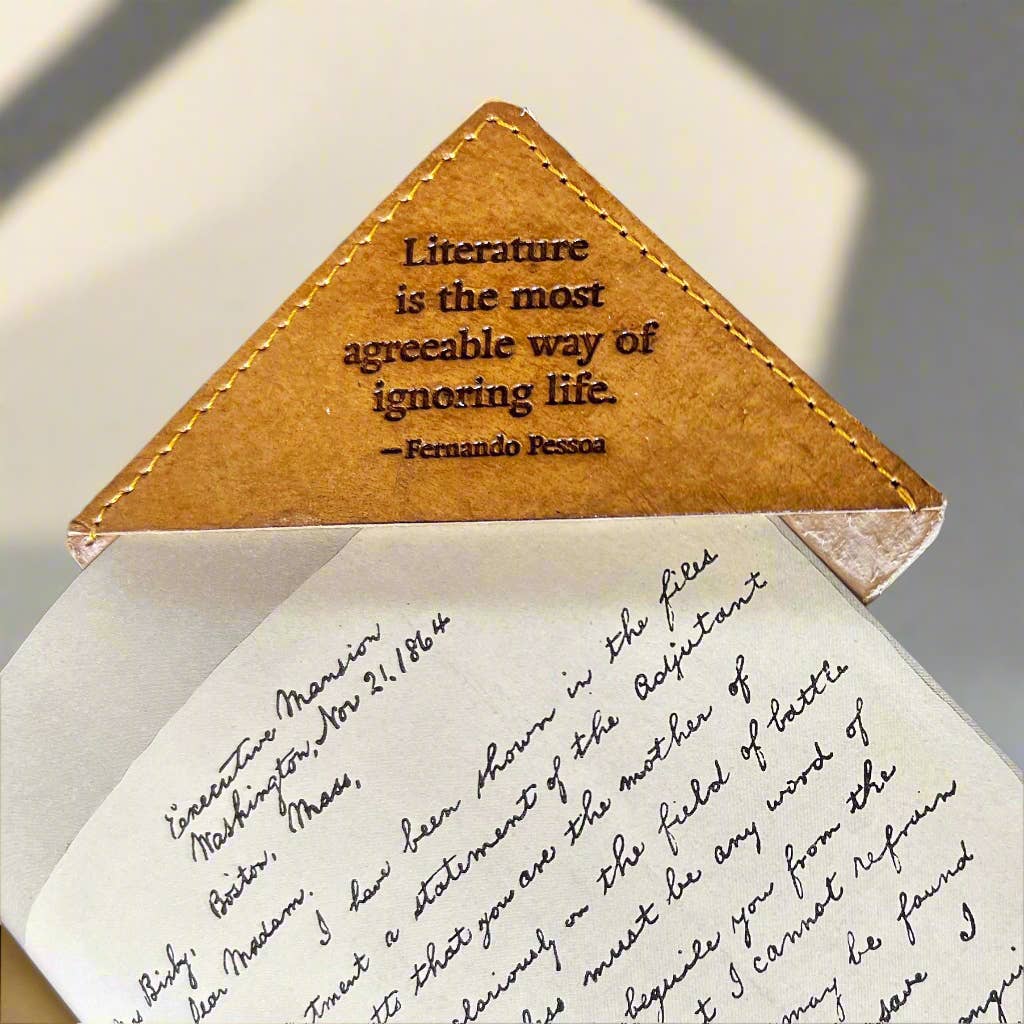 Literature
is the most
agreeable way of
ignoring life.
–Fernando Pessoa
Executive Mansion
Washington, Nov 21, 1864
Bixby, Boston, Mass,
Dear Madam.
I have been shown in the files
tment a statement of the Adjutant
tts that you are the mother of
gloriously on the field of battle
less must be any word of
beguile you from the
t I cannot refrain
may be found
save I